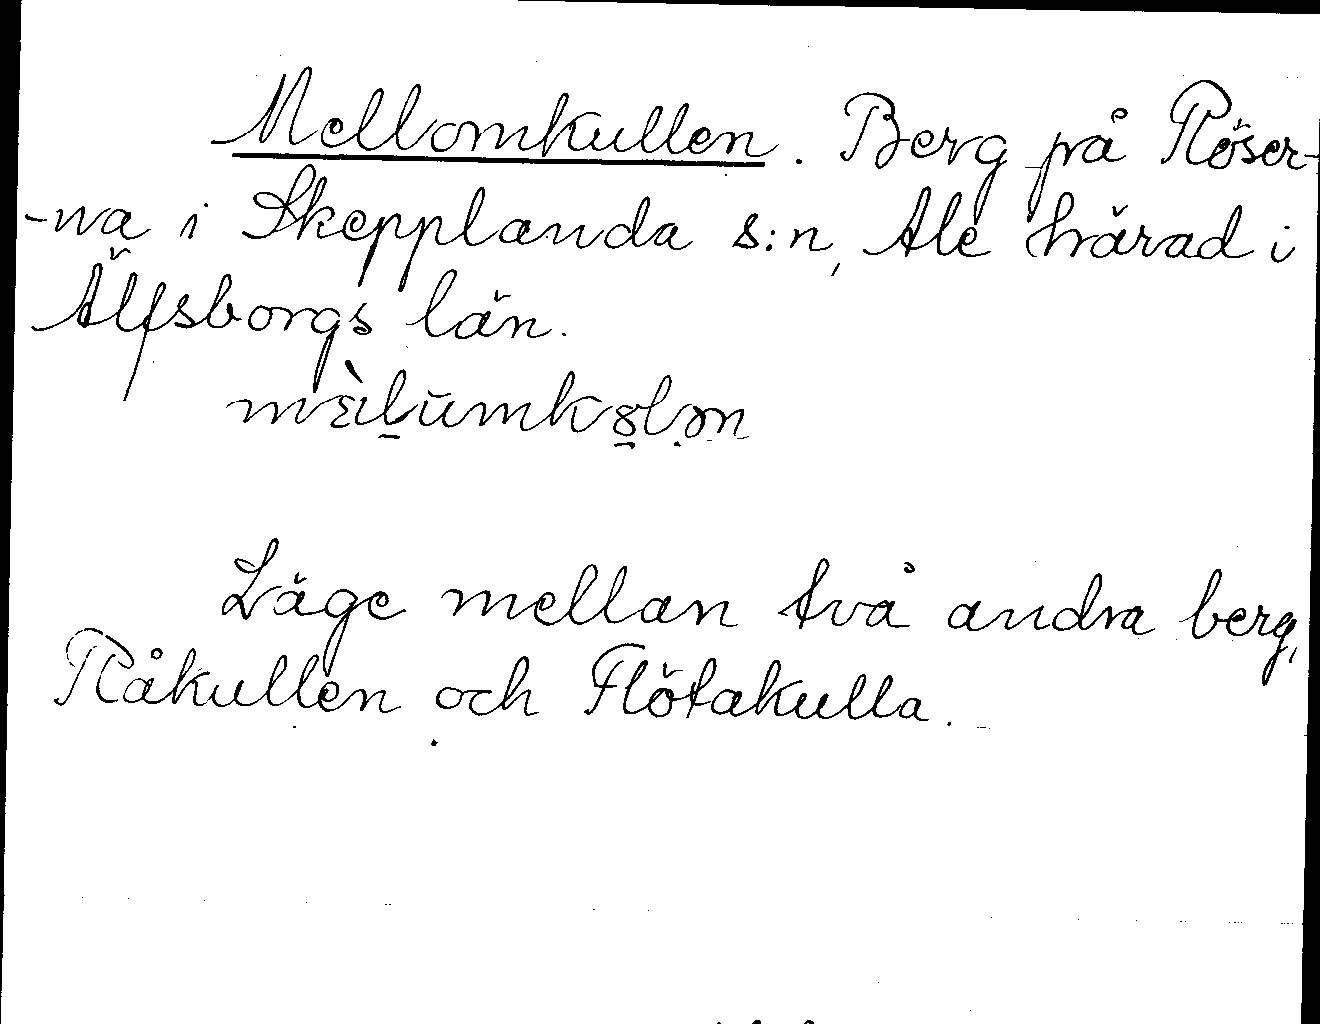 Mellomkullen. Berg på Röser-
-na i Skepplanda s:n, Ale härad i
Älfsborgs län.
Läge mellan två andra berg,
Råkullen och Flötakulla.